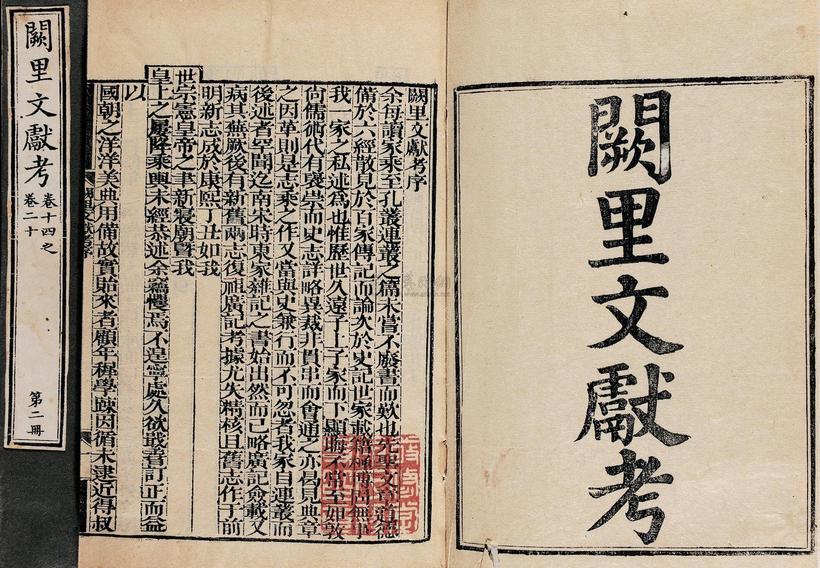 闕里文獻考
闕里文獻考序
余每讀家乘至孔叢連叢之篇未嘗不廢書而歎也先聖文章道德
備於六經散見於百家傳記而論次於史記世家載籍極博尚無事
我一家之私述爲也惟歷世久遠子上子家而下顯晦不常至如敦
尚儒術代有襃崇而史志詳略異裁非貫串而會通之亦烏見典章
之因革則是志乘之作又當與史兼行而不可忽者我家自連叢而
後述者罕聞迄南宋時東家雜記之書始出然而已略廣記僉載又
病其蕪厥後有新舊兩志復祖廣記考據尤失精核且舊志作于前
明新志成於康熙丁丑如我
世宗憲皇帝之聿新寢廟曁我
皇上之屢降乘輿未經恭述余竊懼焉不遑寧處久欲戡舊訂正而益
以
國朝之洋洋美典用備故實貽來者顧年穉學疎因循未逮近得叔
闕里文獻考
卷十四之
卷二十
第二冊